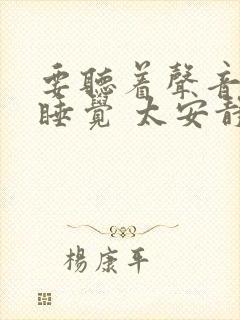 要聽着聲音
睡覺 太安靜
楊康平